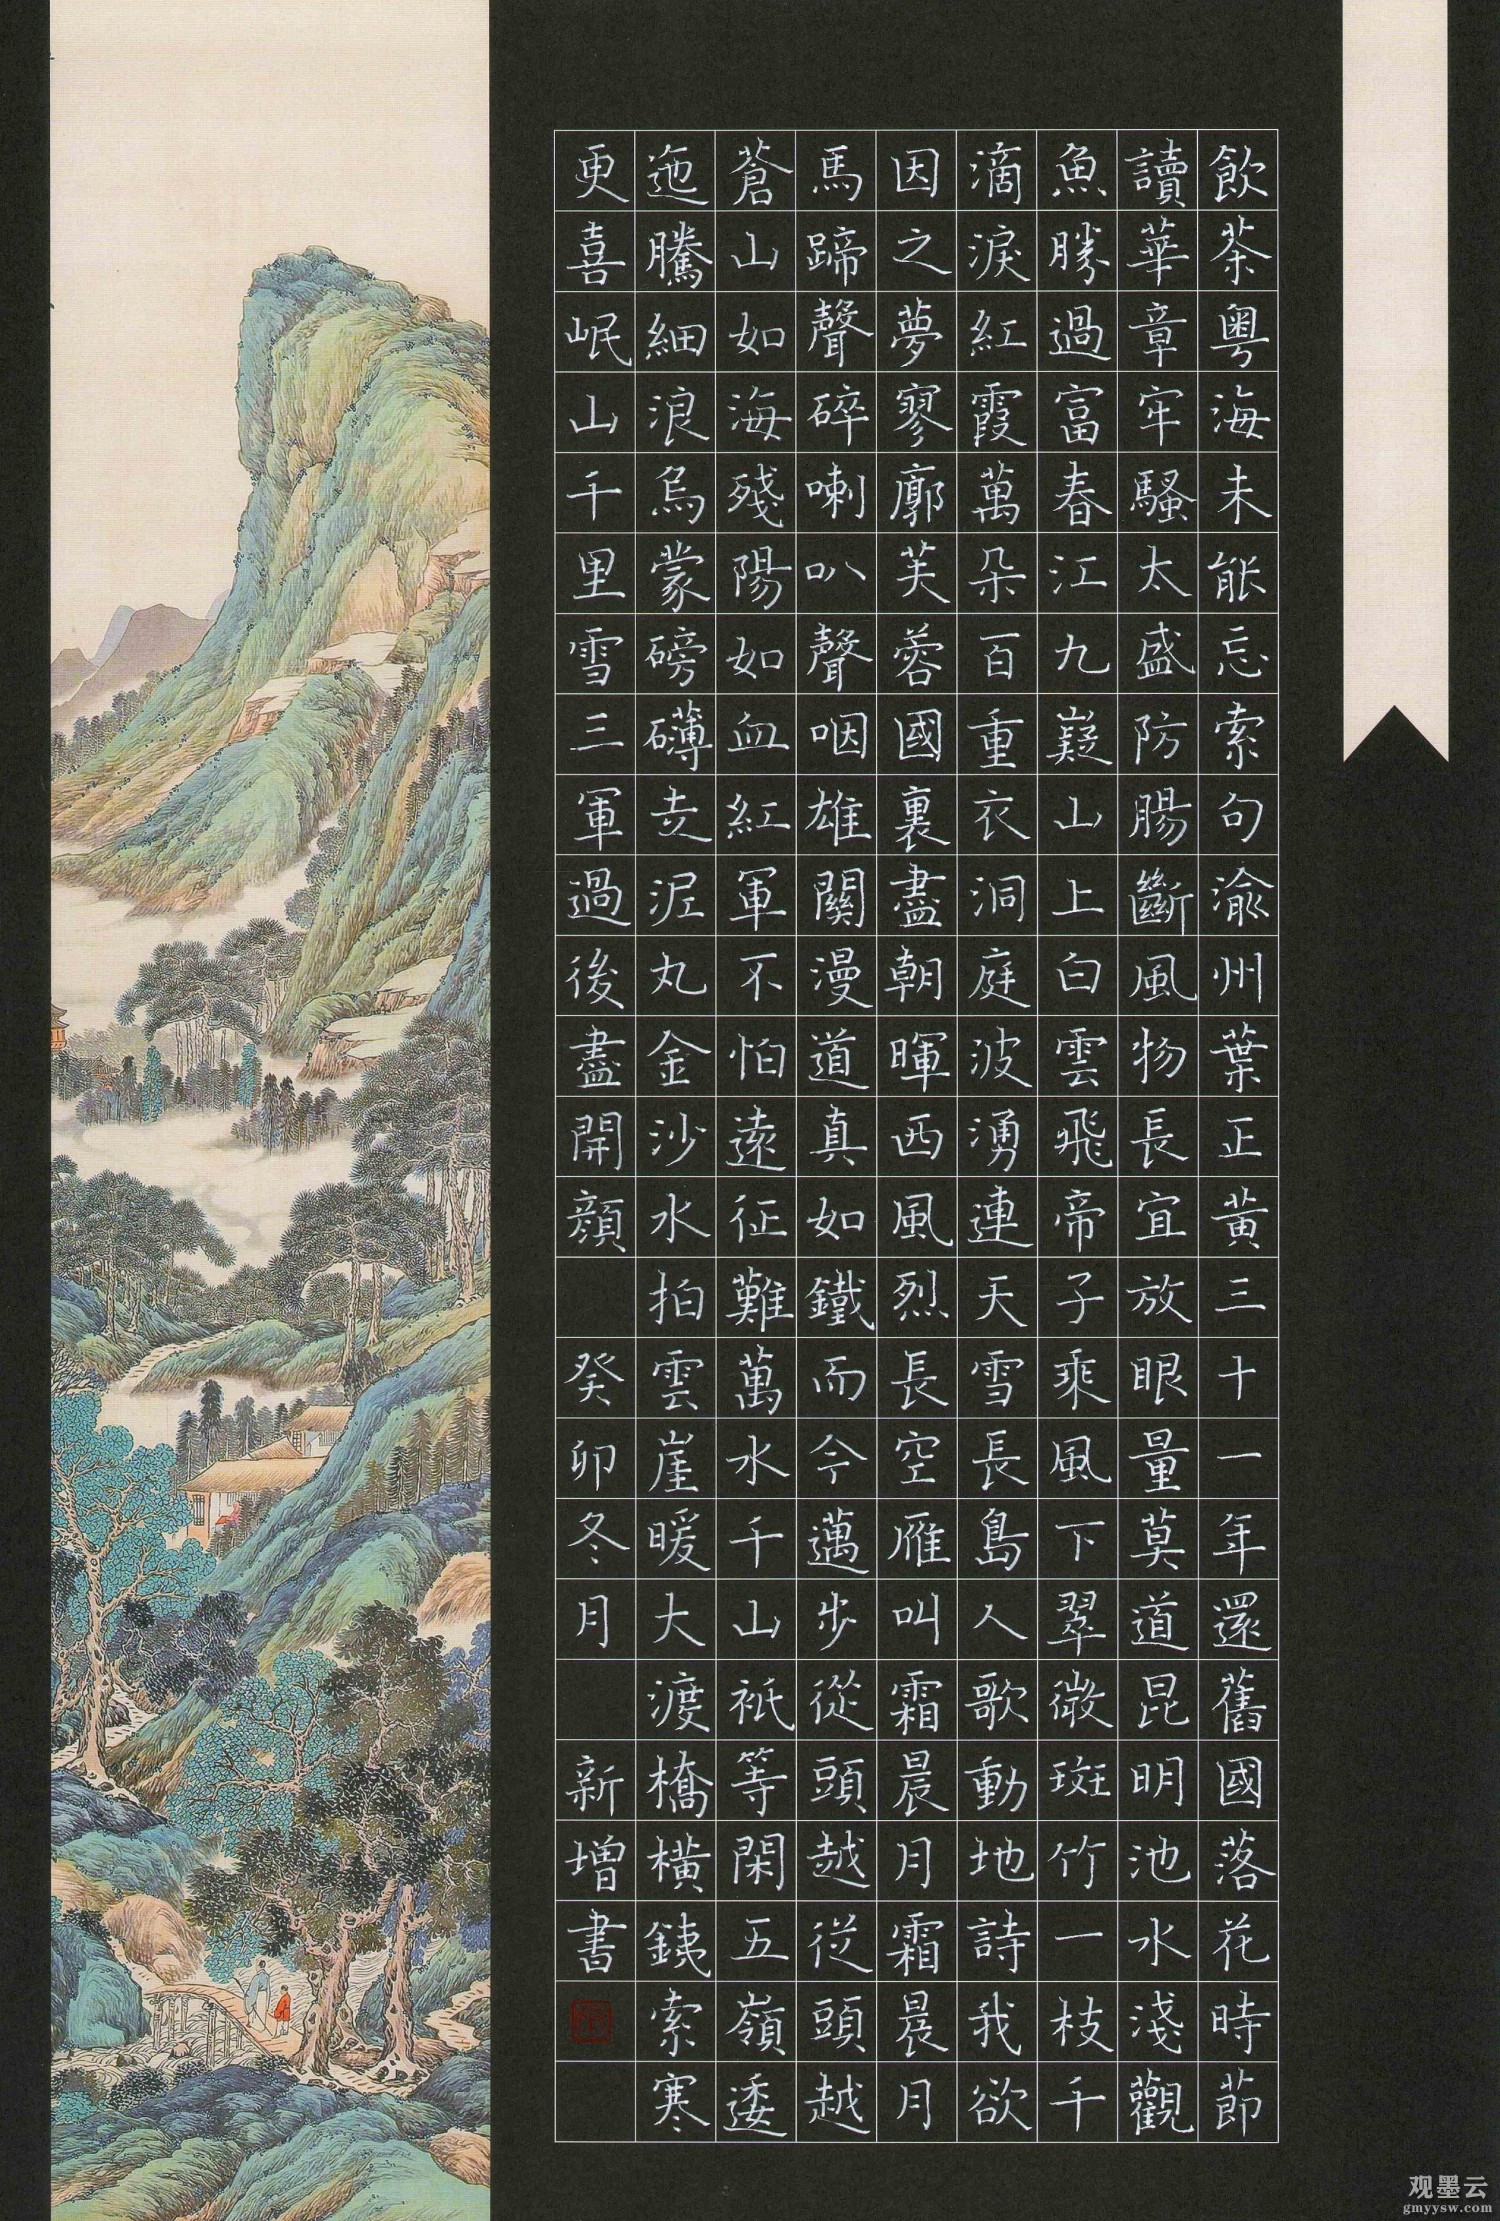 飲茶粵海未能忘索句渝州葉正黃三十一年還舊國落花時節
讀華章牢騷太盛防腸斷風物長宜放眼量莫道昆明池水淺觀
魚勝過富春江九嶷山上白雲飛帝子乘風下翠微斑竹一枝千
滴淚紅霞萬朵百重衣洞庭波湧連天雪長島人歌動地詩我欲
因之夢寥廓芙蓉國裏盡朝暉西風烈長空雁叫霜晨月霜晨月
馬蹄聲碎喇叭聲咽雄關漫道真如鐵而今邁步從頭越從頭越
蒼山如海殘陽如血紅軍不怕遠征難萬水千山祇等閑五嶺逶
迤騰細浪烏蒙磅礴走泥丸金沙水拍雲崖暖大渡橋橫銕索寒
更喜岷山千里雪三軍過後盡開顏 癸卯冬月 新增書
观墨云
gmyysw.com